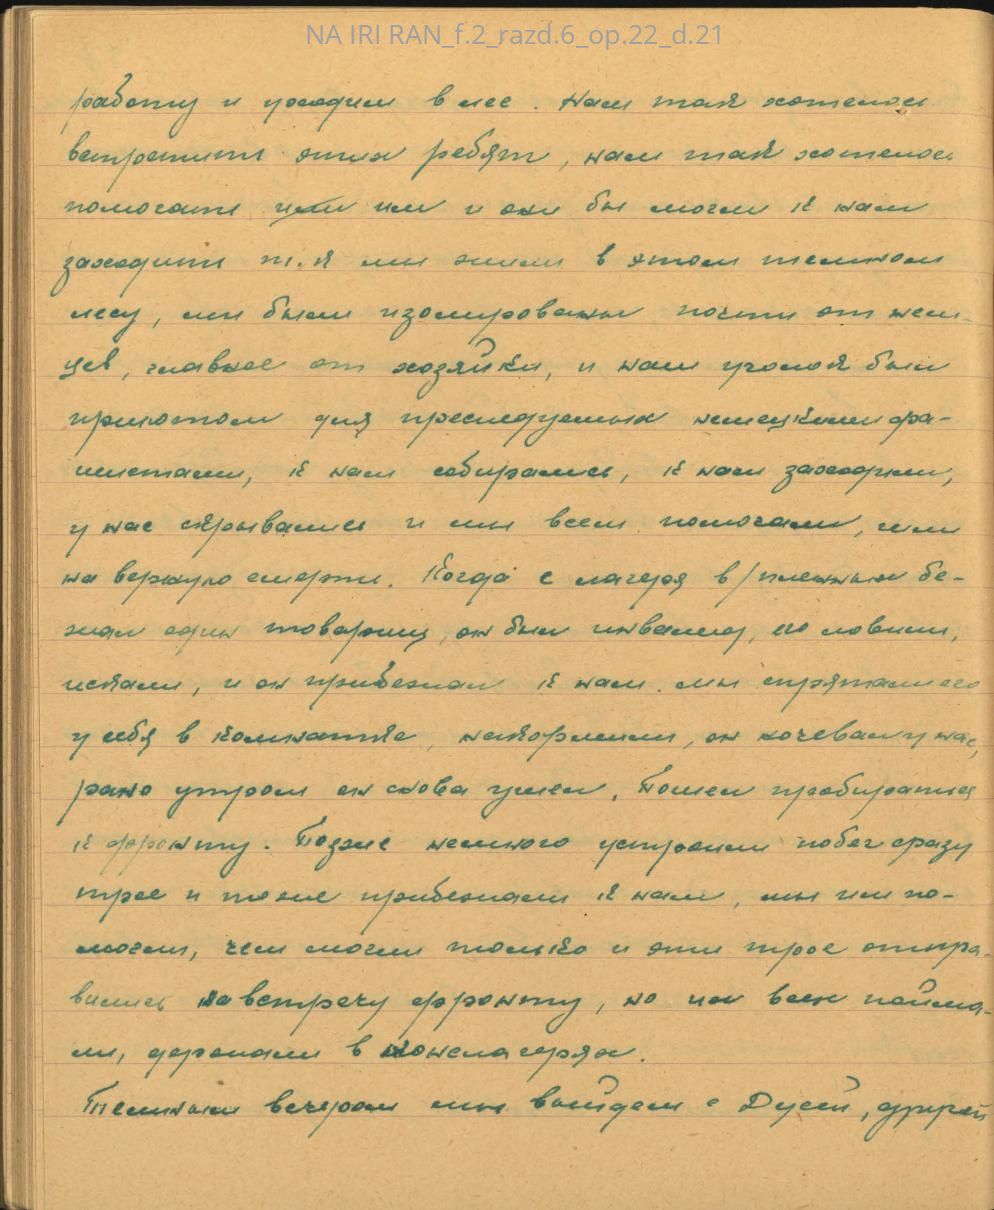 NA IRI RAN_f.2_razd.6_op.22_d.21
работу и уходили в лес. Нам так хотелось
встретить этих ребят, нам так хотелось
помогать им и они бы могли к нам
заходить т.к мы жили в этом темном
лесу, мы были изолированы почти от нем-
цев, главное от хозяйки, и нам уголок был
приютом для преследуемых немецкими фа-
шистами, к нам собирались, к нам заходили,
у нас скрывались и мы всем помогали, шли
на верную смерть. Когда с лагеря в/пленных бе-
жал один товарищ, он был инвалид, его ловили,
искали, и он прибежал к нам. мы спрятали его
у себя в комнатке, накормили, он ночевал у нас,
рано утром он снова ушел. Пошел пробираться
к фронту. Позже немного устроили побег сразу
трое и тоже прибежали к нам, мы им по-
могли, чем могли только и эти трое отпра-
вились на встречу фронту, но их всех пойма-
ли, держали в концлагерях.
Темным вечером мы выйдем с Дусей, другой